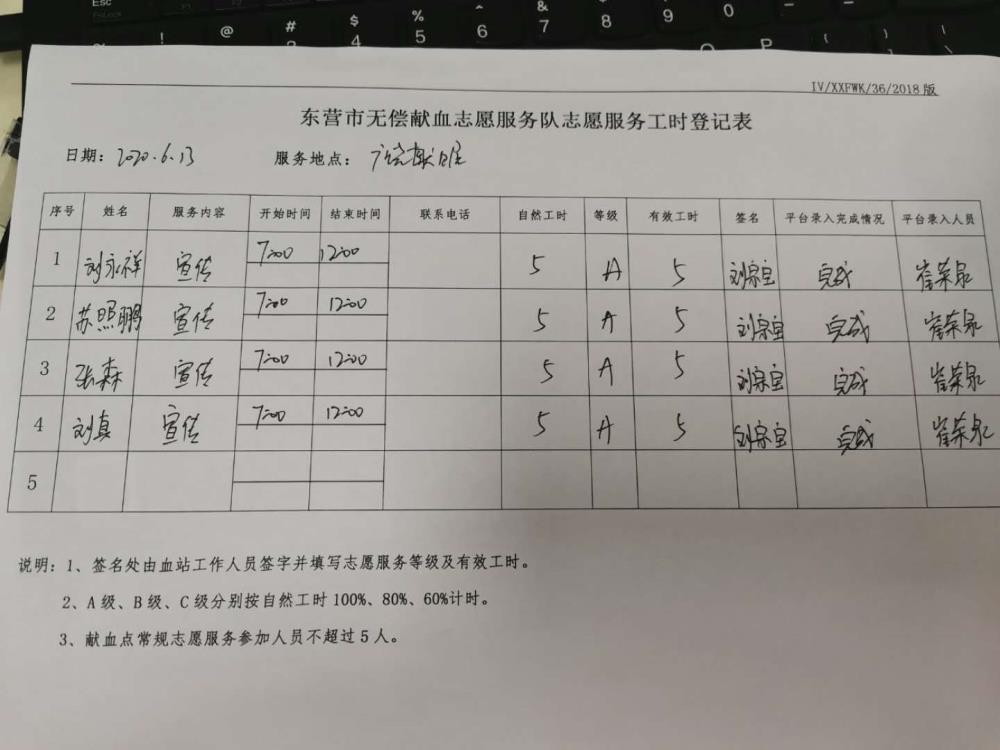 Esc
@ # $ % & * ( ) _
2 3 4 5 6 7 8 9 0
O P
IV/XXFWK/36/2018版
东营市无偿献血志愿服务队志愿服务工时登记表
日期：2020.6.13 服务地点：广饶献血屋
序号 姓名 服务内容 开始时间 结束时间 联系电话 自然工时 等级 有效工时 签名 平台录入完成情况 平台录入人员
1 刘永祥 宣传 7:00 12:00 5 A 5 刘宗宝 完成 崔荣泉
2 苏照鹏 宣传 7:00 12:00 5 A 5 刘宗宝 完成 崔荣泉
3 张森 宣传 7:00 12:00 5 A 5 刘宗宝 完成 崔荣泉
4 刘真 宣传 7:00 12:00 5 A 5 刘宗宝 完成 崔荣泉
5
说明：1、签名处由血站工作人员签字并填写志愿服务等级及有效工时。
2、A级、B级、C级分别按自然工时100%、80%、60%计时。
3、献血点常规志愿服务参加人员不超过5人。